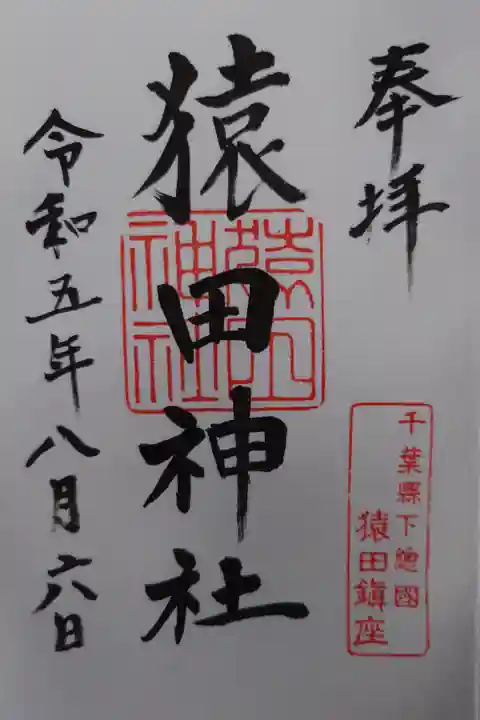 奉拝
千葉縣下總國
猿田鎭座
猿田神社
猿田神社
令和五年八月六日